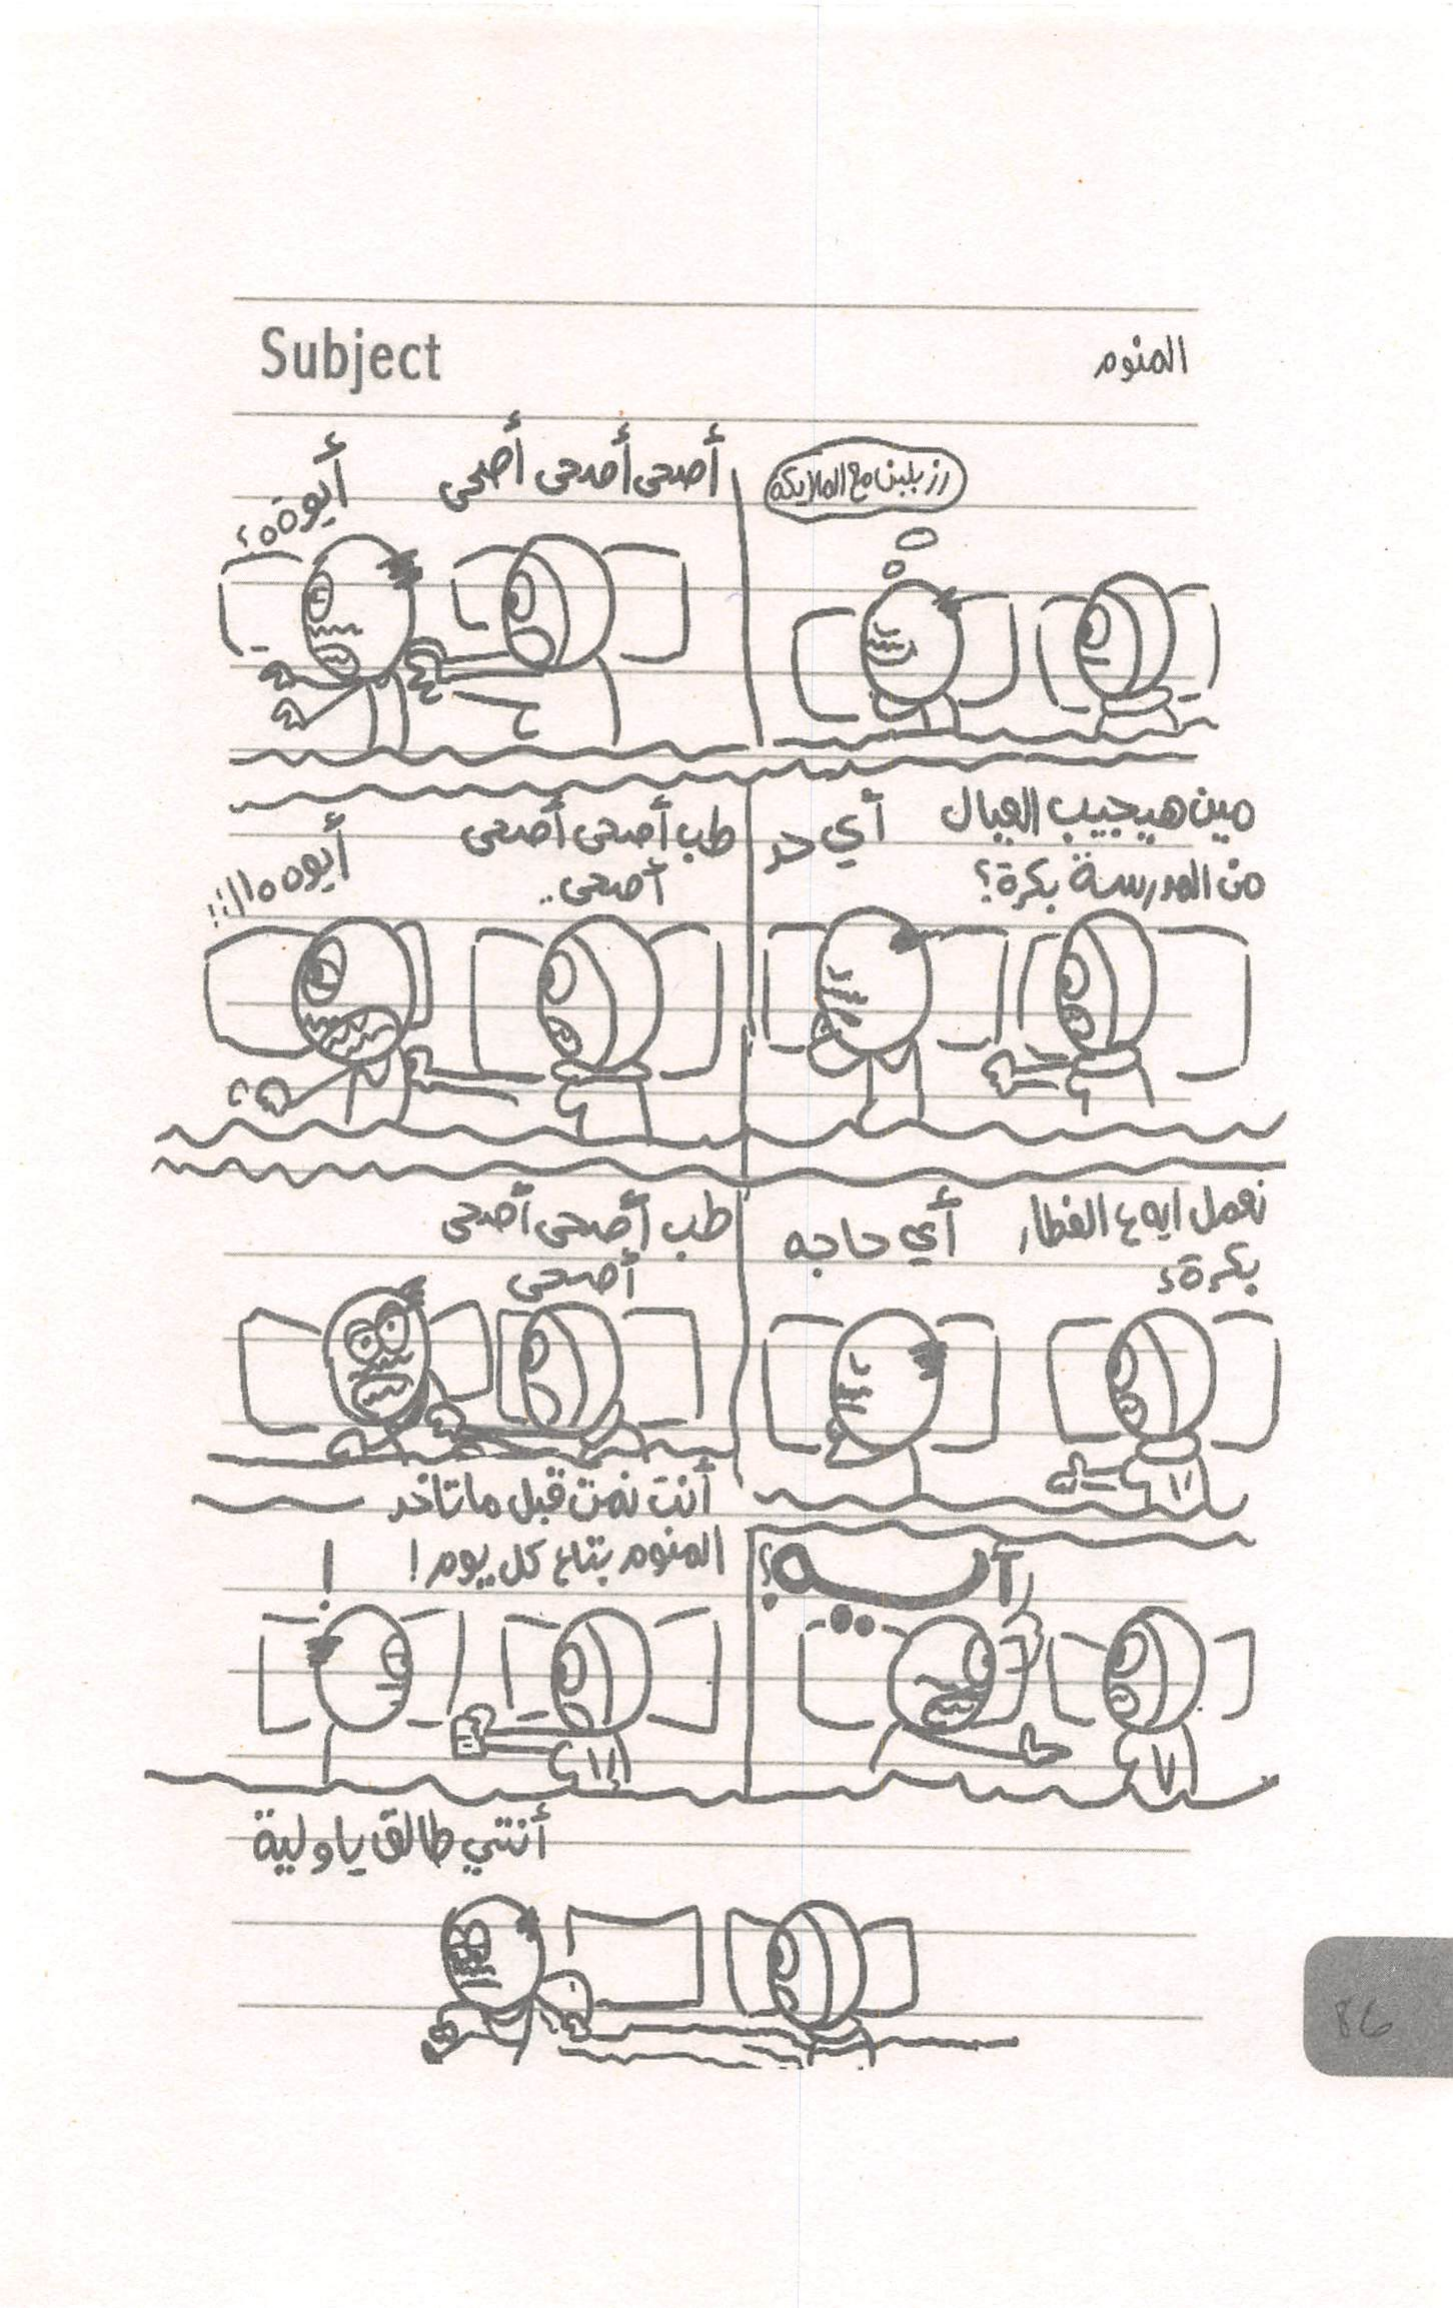 Subject
المنوم
رز بلبن مع الملايكة
أصحى أصحى أصحى
أيوةه؟
مين هيجيب العيال
من المدرسة بكرة؟
أي حد
طب أصحى أصحى
أصحى..
نعمل ايه ع الفطار
بكرة؟
أي حاجه
طب أصحى أصحى
أصحى
آيــــه؟
أنت نمت قبل ماتاخد
المنوم بتاع كل يوم!
!
أنتي طالق ياولية
86